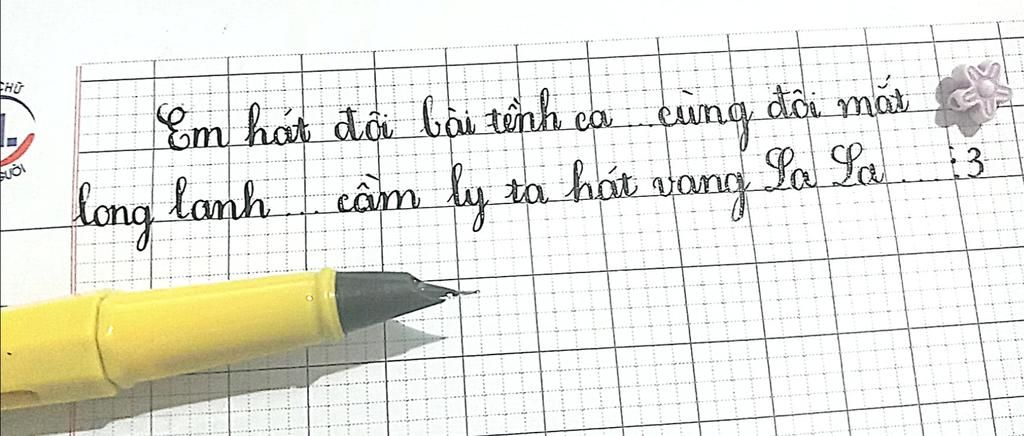 CHỮ
Em hát đôi bài tình ca... cùng đôi mắt
long lanh... cầm ly ta hát vang La La... :3